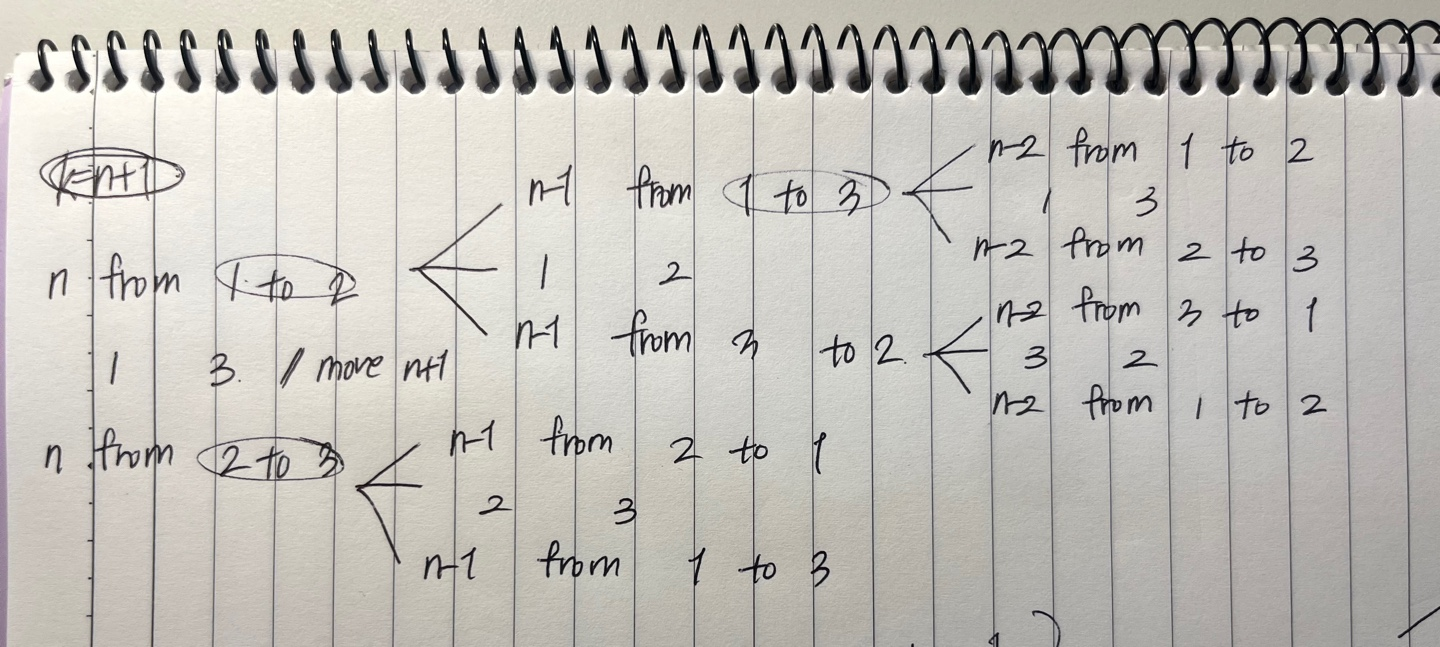 k=n+1
n from 1 to 2
1 3. // move n+1
n from 2 to 3
n-1 from 1 to 3
1 2
n-1 from 3 to 2.
n-1 from 2 to 1
2 3
n-1 from 1 to 3
n-2 from 1 to 2
1 3
n-2 from 2 to 3
n-2 from 3 to 1
3 2
n-2 from 1 to 2